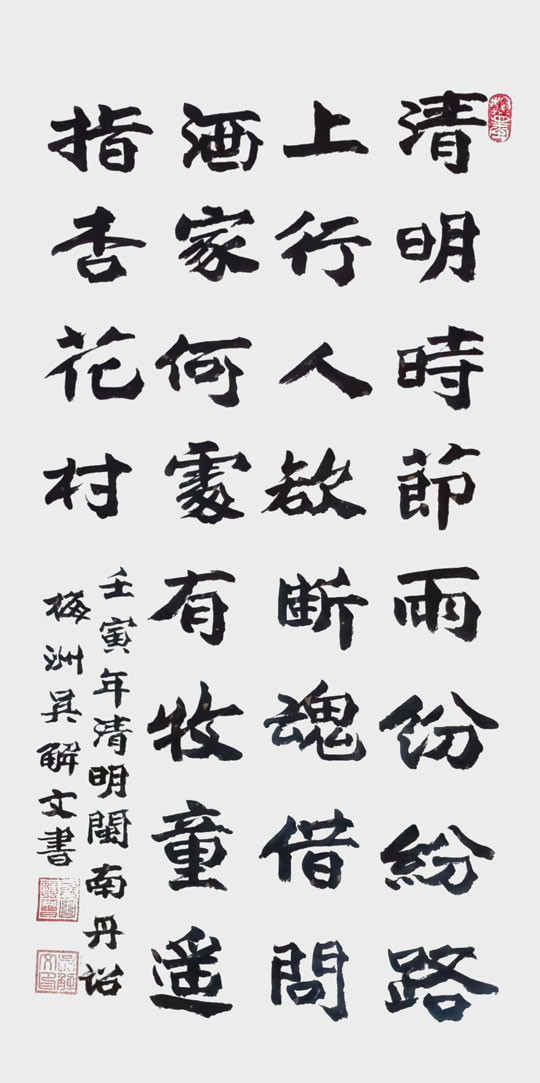 清明時節雨纷紛路
上行人欲断魂借問
酒家何處有牧童遥
指杏花村
壬寅年清明閩南丹诏
梅洲吴解文書